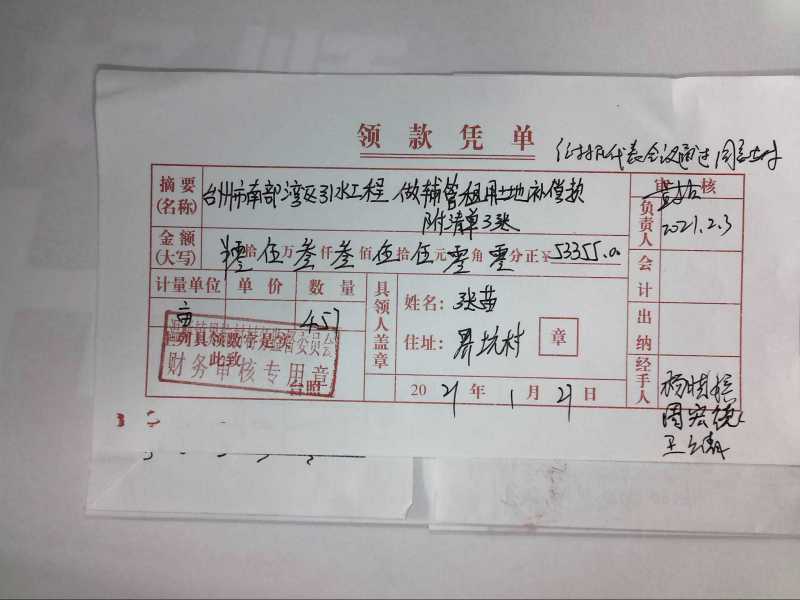 领款凭单
代表会议通过
摘要 台州市南部湾区引水工程 做辅管租用土地补偿款 审核
(名称) 附清单3张
负责人 2021.2.3
金额 零拾伍万叁仟叁佰伍拾伍元零角零分正¥53355.00
(大写)
会计
计量单位 单价 数量
亩 4.57
上列具领数字是实
此致
台照
财务审核专用章
具领人盖章
姓名：张苗
住址：界坑村 章
2021年1月21日
出纳
经手人
周宏